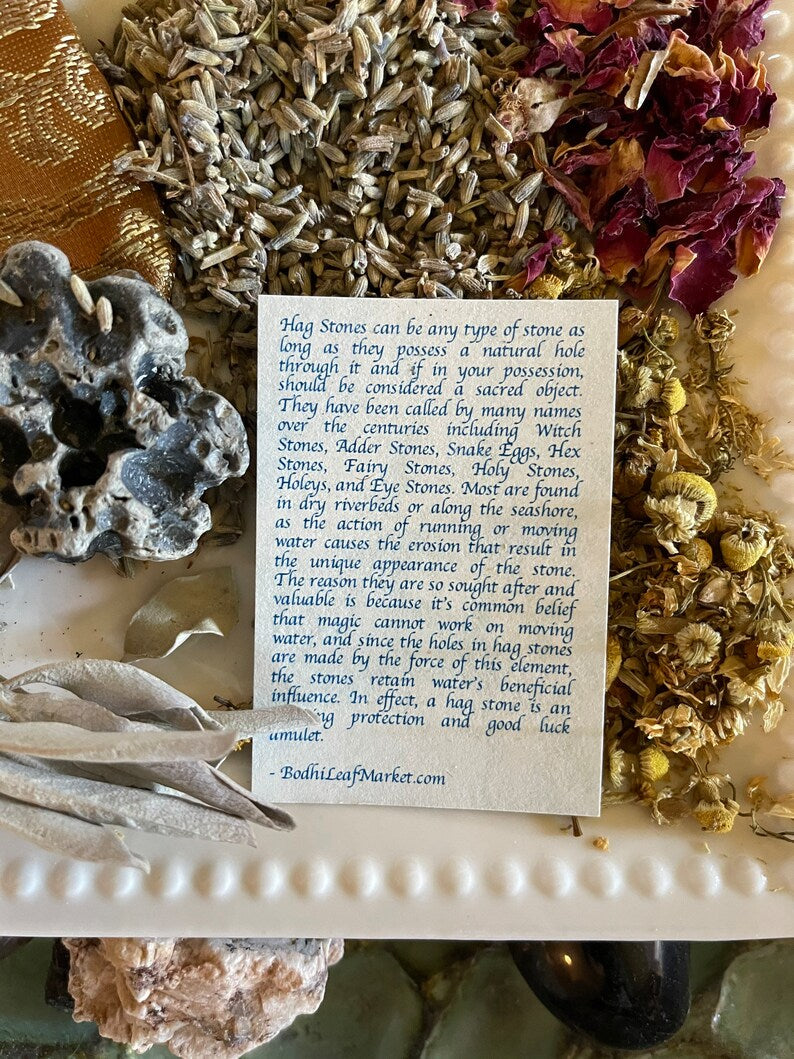 Hag Stones can be any type of stone as
long as they possess a natural hole
through it and if in your possession,
should be considered a sacred object.
They have been called by many names
over the centuries including Witch
Stones, Adder Stones, Snake Eggs, Hex
Stones, Fairy Stones, Holy Stones,
Holeys, and Eye Stones. Most are found
in dry riverbeds or along the seashore,
as the action of running or moving
water causes the erosion that result in
the unique appearance of the stone.
The reason they are so sought after and
valuable is because it's common belief
that magic cannot work on moving
water, and since the holes in hag stones
are made by the force of this element,
the stones retain water's beneficial
influence. In effect, a hag stone is an
protection and good luck
amulet.
- BodhiLeafMarket.com